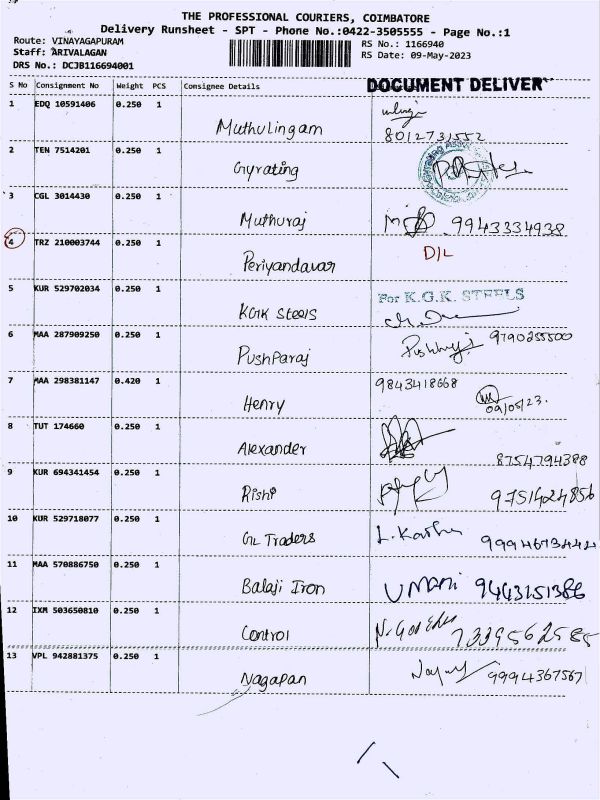 THE PROFESSIONAL COURIERS, COIMBATORE
Delivery Runsheet - SPT - Phone No.:0422-3505555 - Page No.:1
Route: VINAYAGAPURAM RS No.: 1166940
Staff: ARIVALAGAN RS Date: 09-May-2023
DRS No.: DCJB116694001
DOCUMENT DELIVER
S No Consignment No Weight PCS Consignee Details
1 EDQ 10591406 0.250 1
Muthulingam 8012731552
2 TEN 7514201 0.250 1
Gyrating
3 CGL 3014430 0.250 1
Muthuraj 9943334938
4 TRZ 210003744 0.250 1
Periyandavar D/L
5 KUR 529702034 0.250 1
For K.G.K. STEELS
KGK Steels
6 MAA 287909250 0.250 1
Pushparaj 9790255500
7 MAA 298381147 0.420 1 9843418668
Henry 09/05/23.
8 TUT 174660 0.250 1
Alexander 8754794388
9 KUR 694341454 0.250 1
Rishi 9751424856
10 KUR 529718077 0.250 1
GL Traders
11 MAA 570886750 0.250 1
Balaji Iron UMAMI 9443151386
12 IXM 503650810 0.250 1
Control 7339562585
13 VPL 942881375 0.250 1
Nagapan 9994367567